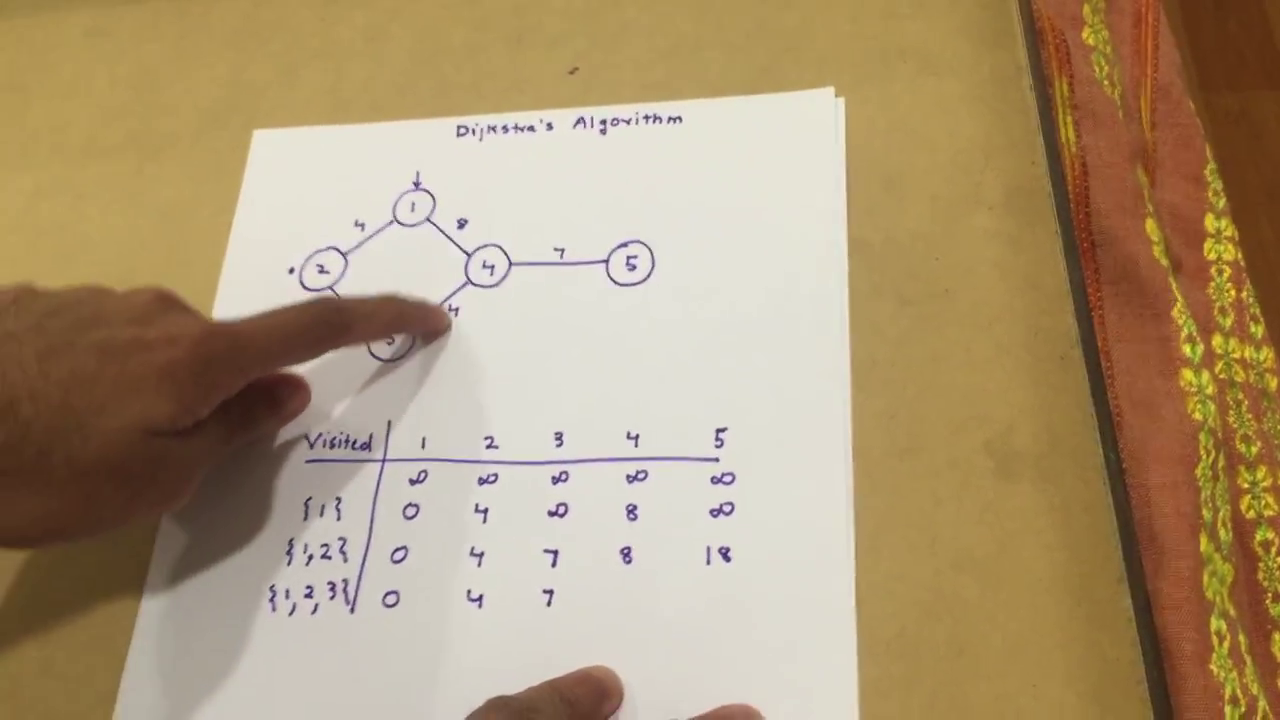 Dijkstra's Algorithm
1
4 8
2 4 7 5
4
3
Visited 1 2 3 4 5
∞ ∞ ∞ ∞ ∞
{1} 0 4 ∞ 8 ∞
{1,2} 0 4 7 8 18
{1,2,3} 0 4 7